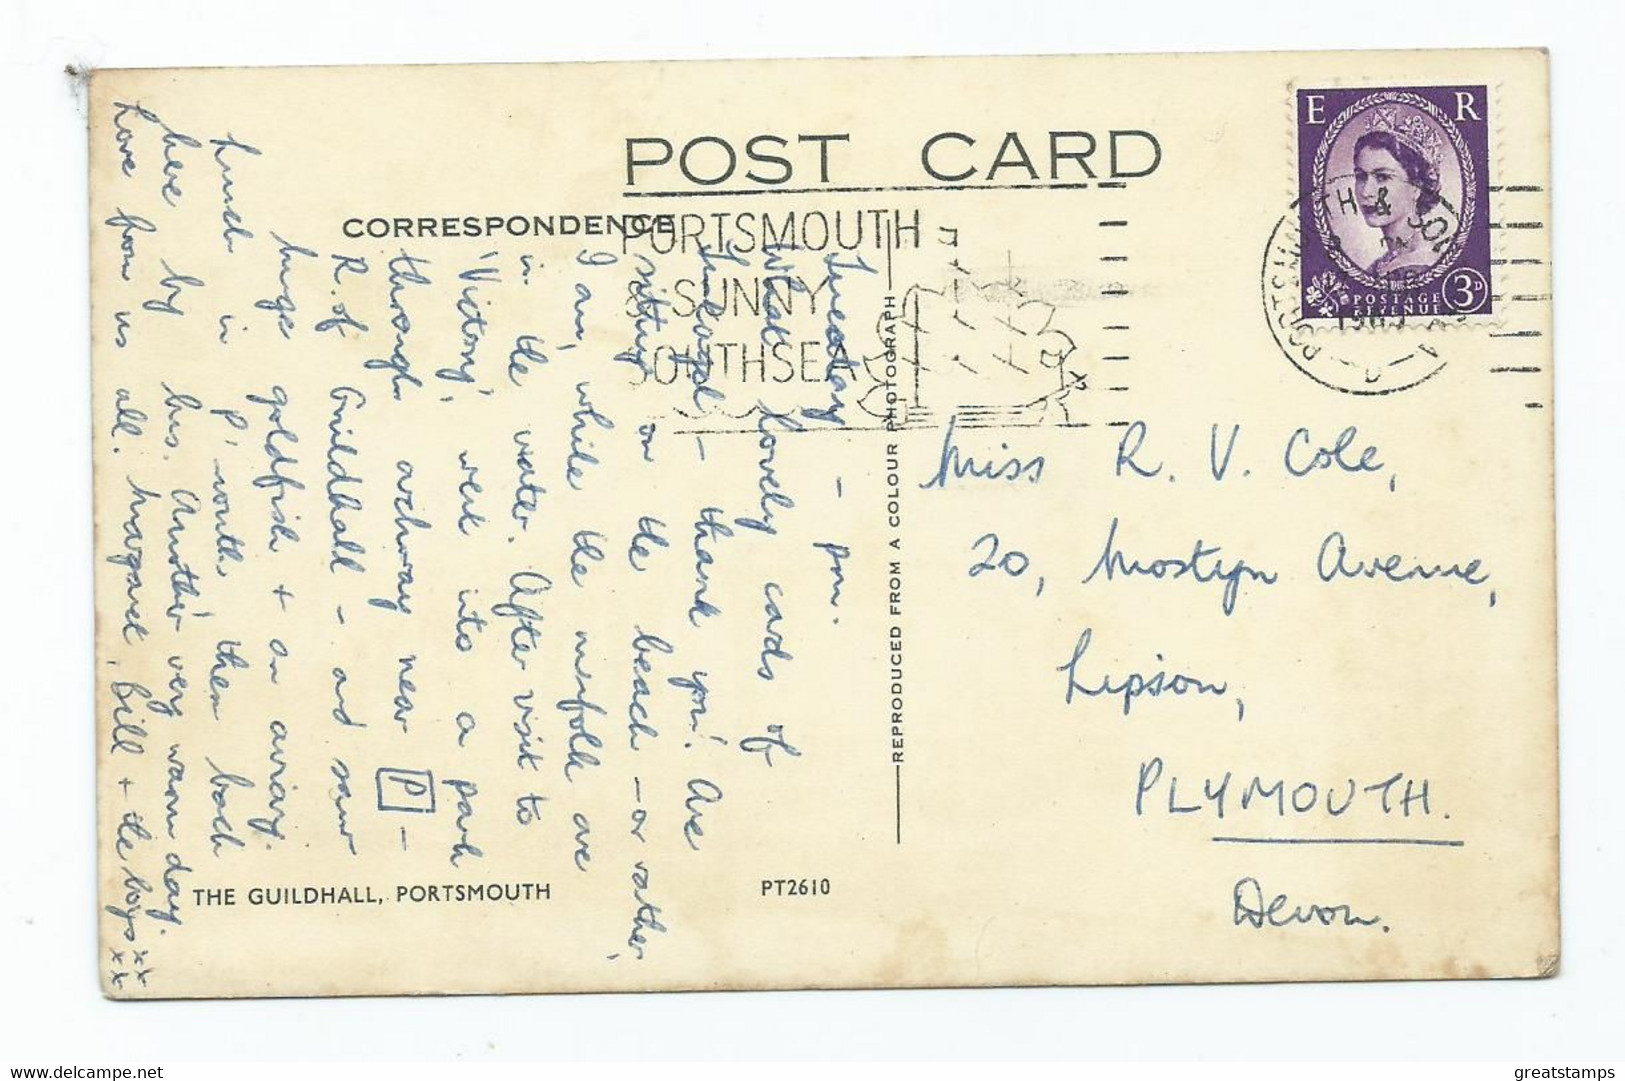 POST CARD
CORRESPONDENCE
PORTSMOUTH
& SUNNY
SOUTHSEA
E R
POSTAGE
REVENUE
3D
PORTSMOUTH & SOUTHSEA
Tuesday - pm.
What lovely cards of
- thank you! Are
sitting on the beach - or rather,
I am, while the menfolk are
in the water. After visit to
'Victory', went into a park
through archway near P -
R. of Guildhall - and saw
huge goldfish + an aviary.
Lunch in P'mouth, then back
here by bus. Another very warm day.
Love from us all. Margaret, Bill + the boys xx
xx
REPRODUCED FROM A COLOUR PHOTOGRAPH
Miss R. V. Cole,
20, Mostyn Avenue,
Lipson,
PLYMOUTH.
Devon.
THE GUILDHALL, PORTSMOUTH
PT2610
greatstamps